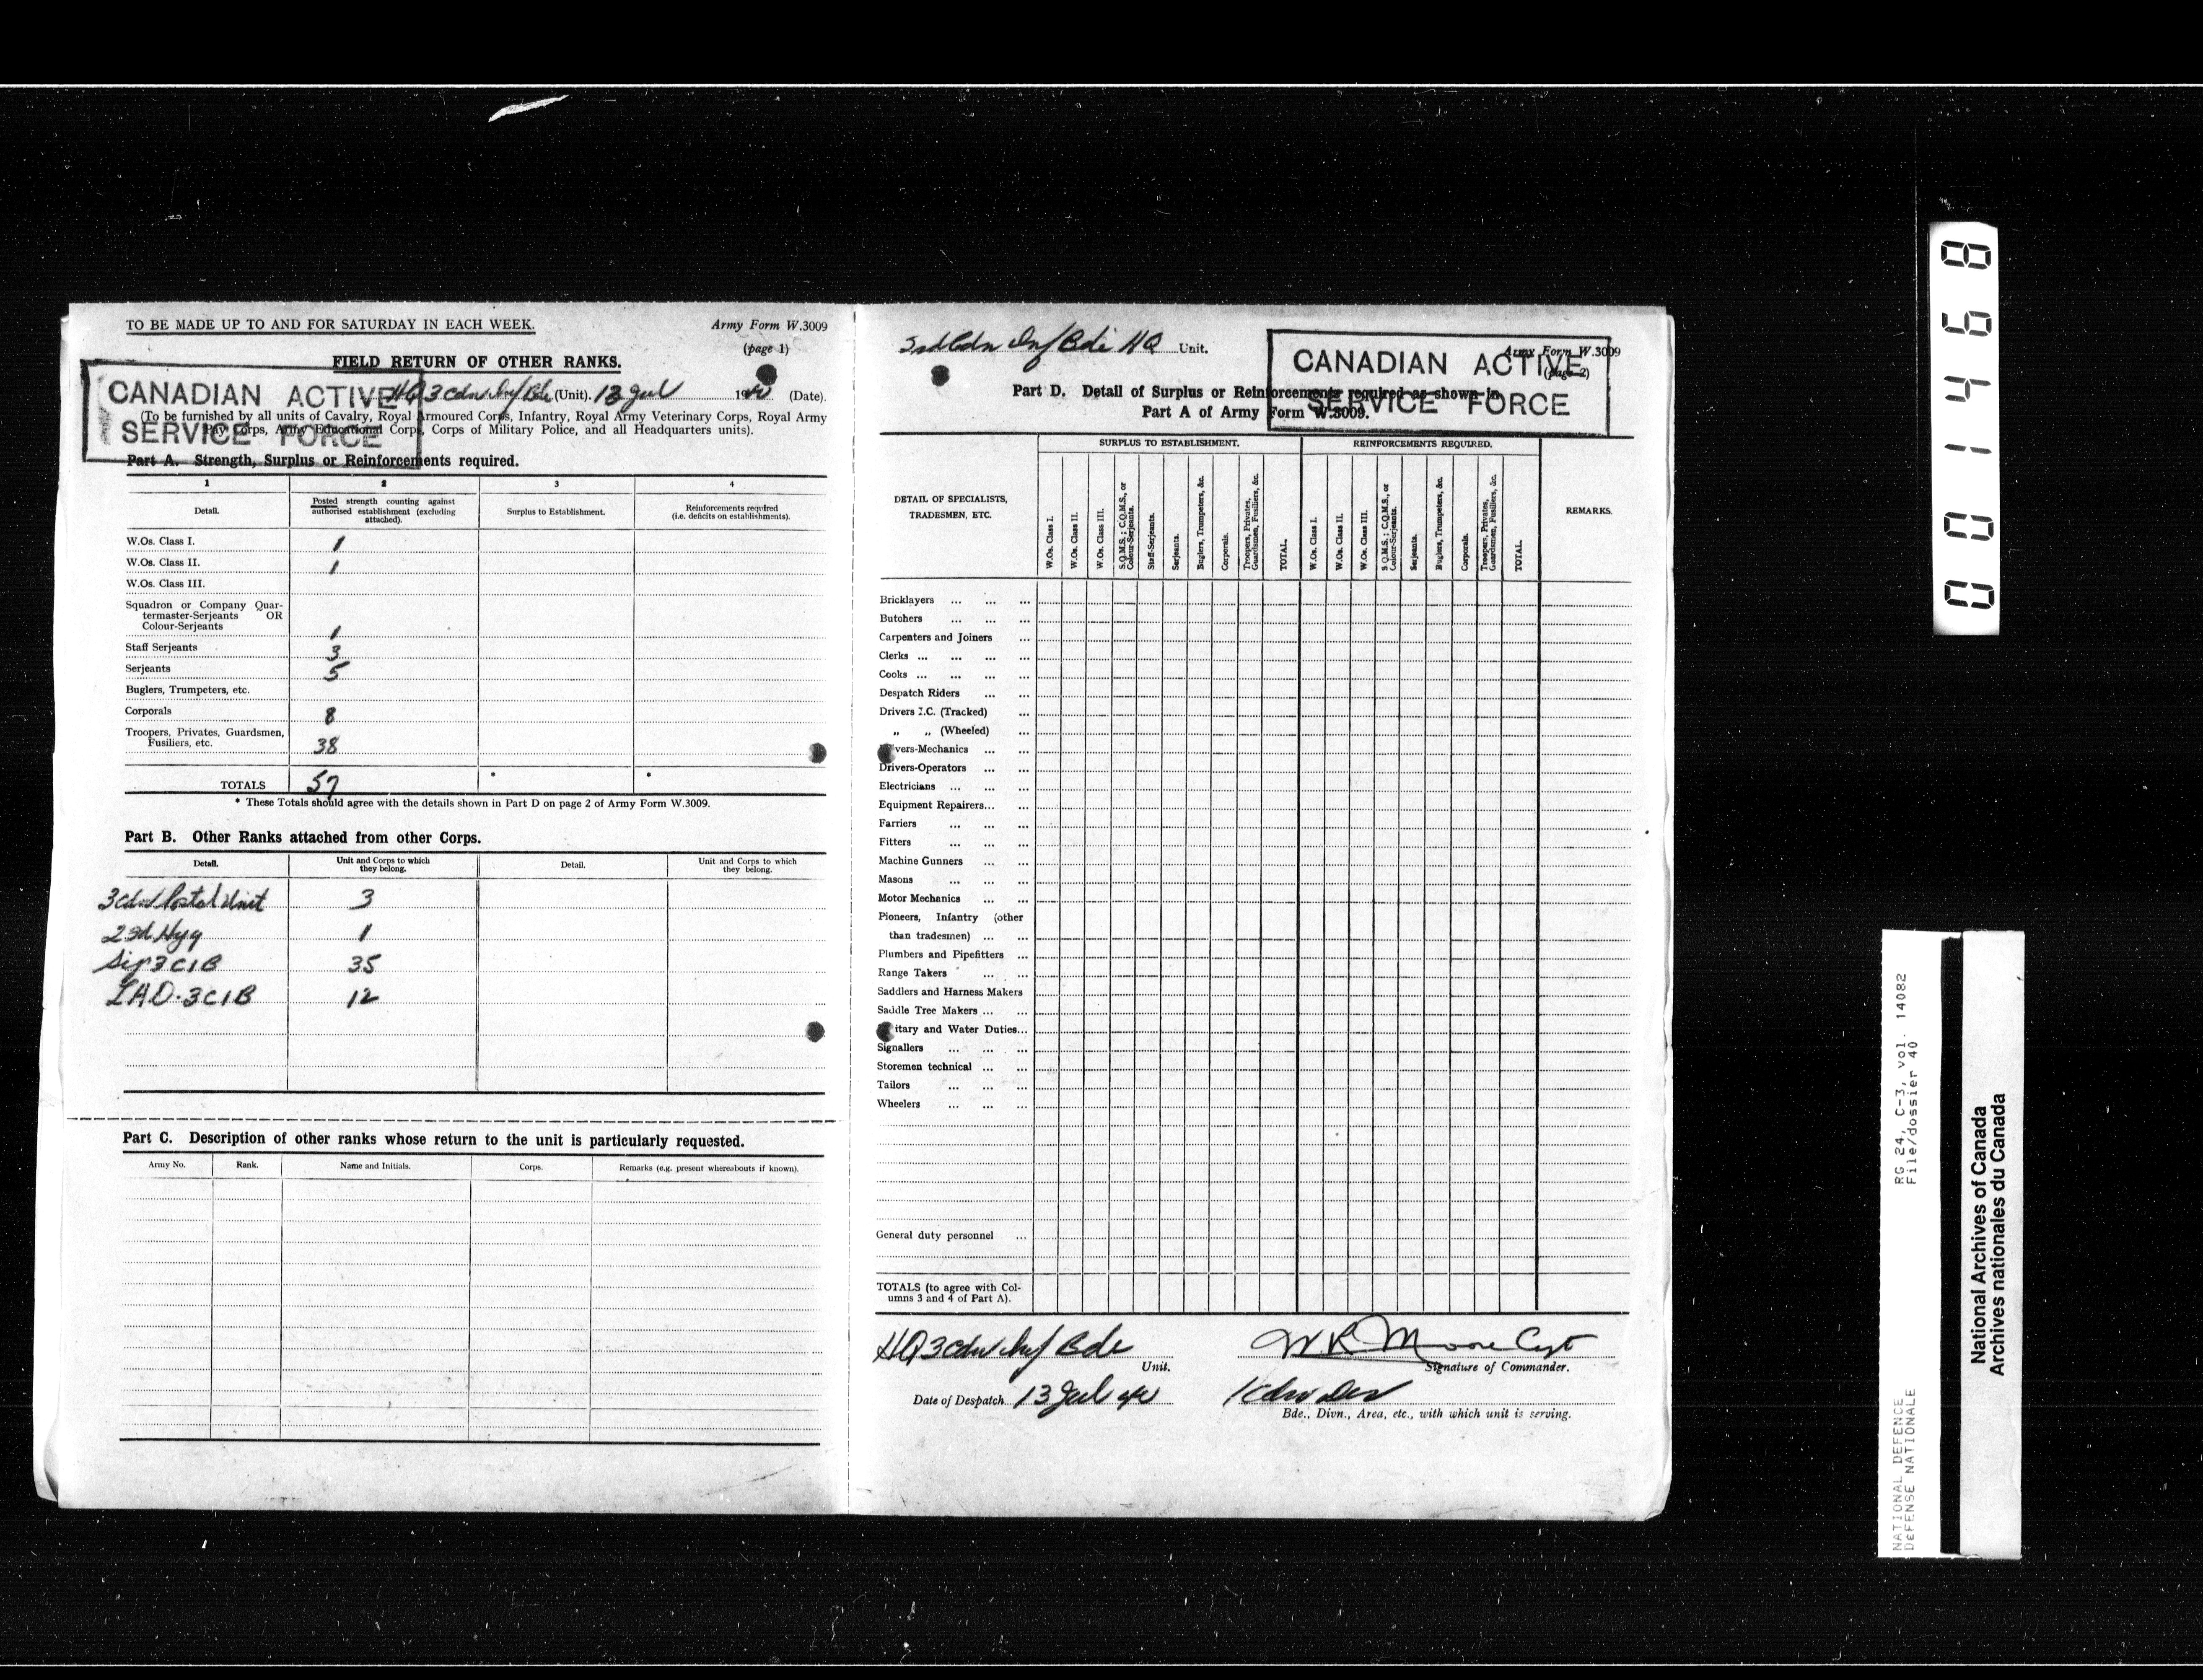 TO BE MADE UP TO AND FOR SATURDAY IN EACH WEEK.
Army Form W.3009
(page 1)
FIELD RETURN OF OTHER RANKS.
CANADIAN ACTIVE
SERVICE FORCE
HQ 3 Cdn Inf Bde (Unit). 13 Jul 1940 (Date).
(To be furnished by all units of Cavalry, Royal Armoured Corps, Infantry, Royal Army Veterinary Corps, Royal Army
Pay Corps, Army Educational Corps, Corps of Military Police, and all Headquarters units).
Part A. Strength, Surplus or Reinforcements required.
1 2 3 4
Detail.
Posted strength counting against authorised establishment (excluding attached).
Surplus to Establishment.
Reinforcements required (i.e. deficits on establishments).
W.Os. Class I. 1
W.Os. Class II. 1
W.Os. Class III.
Squadron or Company Quar-
termaster-Serjeants OR
Colour-Serjeants 1
Staff Serjeants 3
Serjeants 5
Buglers, Trumpeters, etc.
Corporals 8
Troopers, Privates, Guardsmen,
Fusiliers, etc. 38
TOTALS 57 * *
* These Totals should agree with the details shown in Part D on page 2 of Army Form W.3009.
Part B. Other Ranks attached from other Corps.
Detail. Unit and Corps to which they belong. Detail. Unit and Corps to which they belong.
3 Cdn Postal Unit 3
2nd Hyg 1
Sig 3 CIB 35
LAD. 3 CIB 12
Part C. Description of other ranks whose return to the unit is particularly requested.
Army No. Rank. Name and Initials. Corps. Remarks (e.g. present whereabouts if known).
3rd Cdn Inf Bde HQ Unit.
Army Form W.3009
(page 2)
CANADIAN ACTIVE
SERVICE FORCE
Part D. Detail of Surplus or Reinforcements required as shown in
Part A of Army Form W.3009.
DETAIL OF SPECIALISTS,
TRADESMEN, ETC.
SURPLUS TO ESTABLISHMENT.
W.Os. Class I.
W.Os. Class II.
W.Os. Class III.
S.Q.M.S.; C.Q.M.S., or Colour-Serjeants.
Staff-Serjeants.
Serjeants.
Buglers, Trumpeters, &c.
Corporals.
Troopers, Privates, Guardsmen, Fusiliers, &c.
TOTAL.
REINFORCEMENTS REQUIRED.
W.Os. Class I.
W.Os. Class II.
W.Os. Class III.
S.Q.M.S.; C.Q.M.S., or Colour-Serjeants.
Serjeants.
Buglers, Trumpeters, &c.
Corporals.
Troopers, Privates, Guardsmen, Fusiliers, &c.
TOTAL.
REMARKS.
Bricklayers ... ... ...
Butchers ... ... ...
Carpenters and Joiners ...
Clerks ... ... ... ...
Cooks ... ... ... ...
Despatch Riders ... ...
Drivers I.C. (Tracked) ...
„ „ (Wheeled) ...
vers-Mechanics ... ...
Drivers-Operators ... ...
Electricians ... ... ...
Equipment Repairers... ...
Farriers ... ... ...
Fitters ... ... ...
Machine Gunners ... ...
Masons ... ... ...
Motor Mechanics ... ...
Pioneers, Infantry (other
than tradesmen) ... ...
Plumbers and Pipefitters ...
Range Takers ... ...
Saddlers and Harness Makers
Saddle Tree Makers ... ...
itary and Water Duties...
Signallers ... ... ...
Storemen technical ... ...
Tailors ... ... ...
Wheelers ... ... ...
General duty personnel ...
TOTALS (to agree with Col-
umns 3 and 4 of Part A).
HQ 3 Cdn Inf Bde
Unit.
W R Moore Capt
Signature of Commander.
Date of Despatch 13 Jul 40
1 Cdn Div
Bde., Divn., Area, etc., with which unit is serving.
001468
RG 24, C-3, vol. 14082
File/dossier 40
NATIONAL DEFENCE
DEFENSE NATIONALE
National Archives of Canada
Archives nationales du Canada